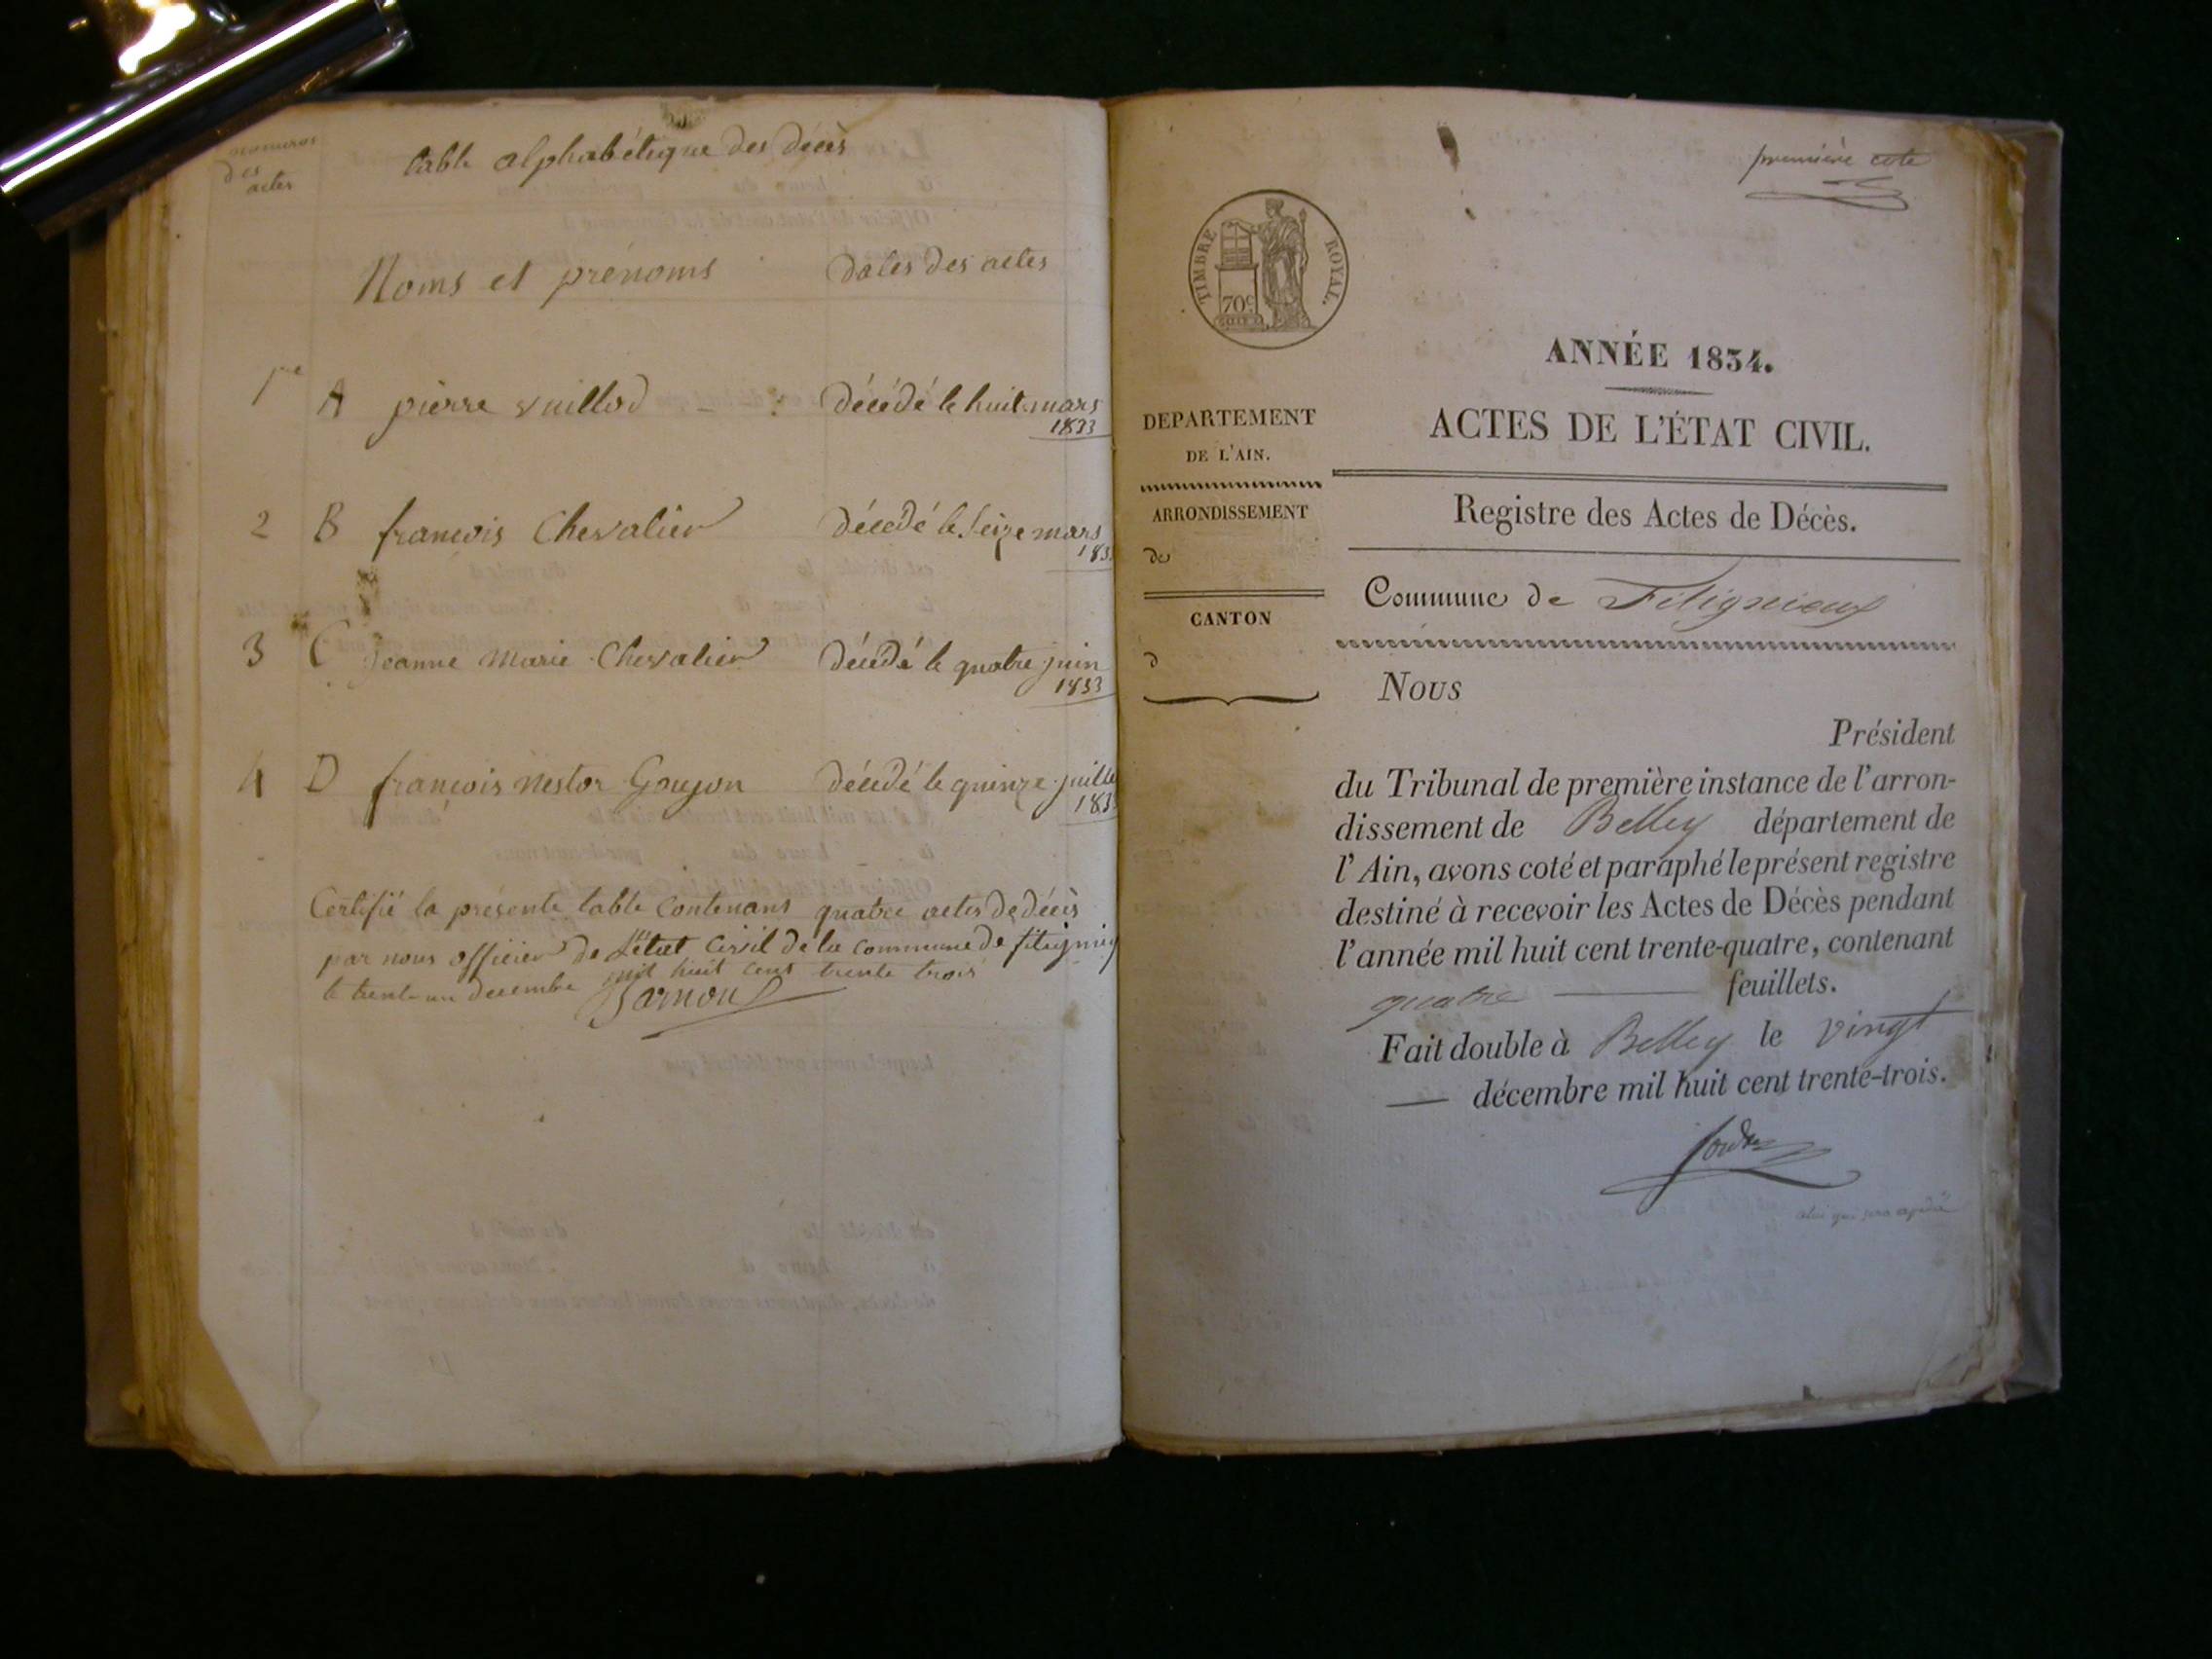 numeros
des
actes
table alphabétique des décès
Noms et prénoms
dates des actes
1re A pierre vuillod décédé le huit mars
1833
2 B francois Chevalier décédé le Seize mars
183
3 C jeanne Marie Chevalier décédé le quatre juin
1833
4 D francois Nestor Goujon décédé le quinze juille
183
Certifié la présente table Contenans quatre actes de décès
par nous officier de L'état Civil de la commune de
le trente un decembre mil huit cent trente trois
première cote
TIMBRE ROYAL.
70c
ANNÉE 1834.
ACTES DE L'ÉTAT CIVIL.
Registre des Actes de Décès.
DEPARTEMENT
DE L'AIN.
ARRONDISSEMENT
de
CANTON
d
Commune de Fitignieux
Nous
Président
du Tribunal de première instance de l'arron-
dissement de Belley département de
l'Ain, avons coté et paraphé le présent registre
destiné à recevoir les Actes de Décès pendant
l'année mil huit cent trente-quatre, contenant
quatre feuillets.
Fait double à Belley le vingt
décembre mil huit cent trente-trois.